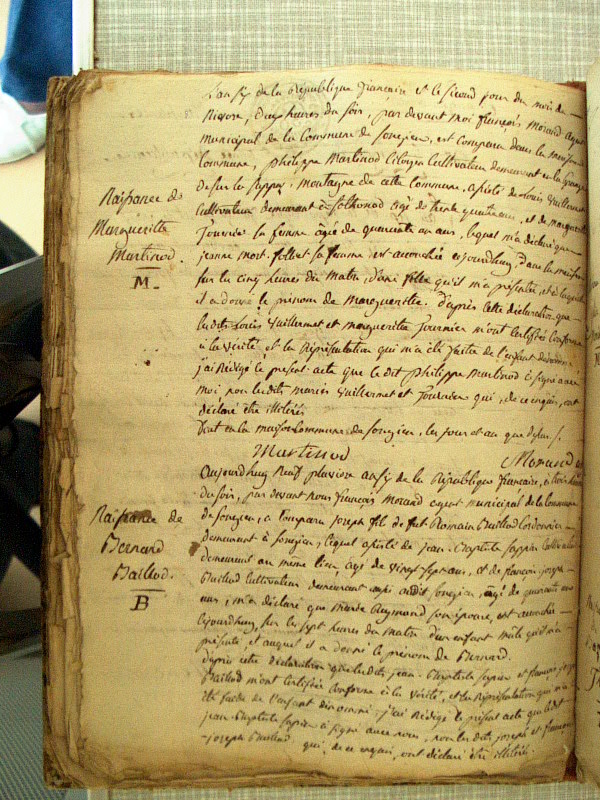 L'an six de la République française et le second jour du mois de
Nivose, deux heures du soir, par devant moi françois Morand agent
municipal de la Commune de Songieu, est comparu dans la maison
Commune, philippe Martinod Citoyen Cultivateur demeurant en la Grange
de sur le sappey, montagne de cette Commune, assisté de Louis Guillermet
Cultivateur demeurant à Sothonod agé de trente quatre ans, et de marguerite
fournier sa femme agée de quarante un ans, lequel m'a déclaré que
jeanne mort. follist sa femme est accouchée aujourdhuy, dans la maison
sur les cinq heures du matin, d'une fille qu'il m'a présentée, et à laquelle
il a donné le prénom de Marguerite. d'après cette déclaration que
lesdits Louis Guillermet et marguerite fournier m'ont certifiée Conforme
à la vérité, et la Représentation qui m'a été faite de l'enfant denommé
j'ai rédigé le présent acte que ledit philippe Martinod a signé avec
moi non lesdits mariés Guillermet et fournier qui, de ce enquis, ont
déclaré être illitérés
fait en la maison Commune de songieu, les jour et an que dessus.
Naissance de
Marguerite
Martinod.
M.
Martinod Morand
aujourdhuy neuf pluviose an six de la République francaise, à trois heures
du soir, par devant nous françois Morand agent municipal de la Commune
de Songieu, a Comparu joseph fils de fut Romain Baillod Cordonnier
demeurant à Songieu, lequel assisté de jean-Baptiste sapin Cultivateur
demeurant au même lieu, agé de vingt sept ans, et de françois joseph
Baillod Cultivateur demeurant aussi audit Songieu, agé de quarante
ans, m'a déclaré que marie Reymond son épouse, est accouchée
aujourdhuy, sur les sept heures du matin d'un enfant mâle qu'il m'a
présenté et auquel il a donné le prénom de Bernard.
d'après cette déclaration que lesdits jean-Baptiste sapin et françois joseph
Baillod m'ont certifiée Conforme à la vérité, et la Représentation qui m'a
été faite de l'enfant denommé j'ai rédigé le présent acte que ledit
jean-Baptiste sapin a signé avec nous, non lesdits joseph et françois
joseph Baillod qui, de ce enquis, ont déclaré être illitérés.
Naissance de
Bernard
Baillod.
B